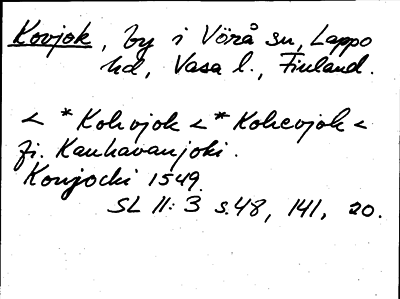 Kovjok, by i Vörå sn, Lappo
hd, Vasa l., Finland.
< *Kohvjok < *Kohevjok <
fi. Kauhavanjoki.
Koujocki 1549.
SL II: 3 s. 48, 141, 20.